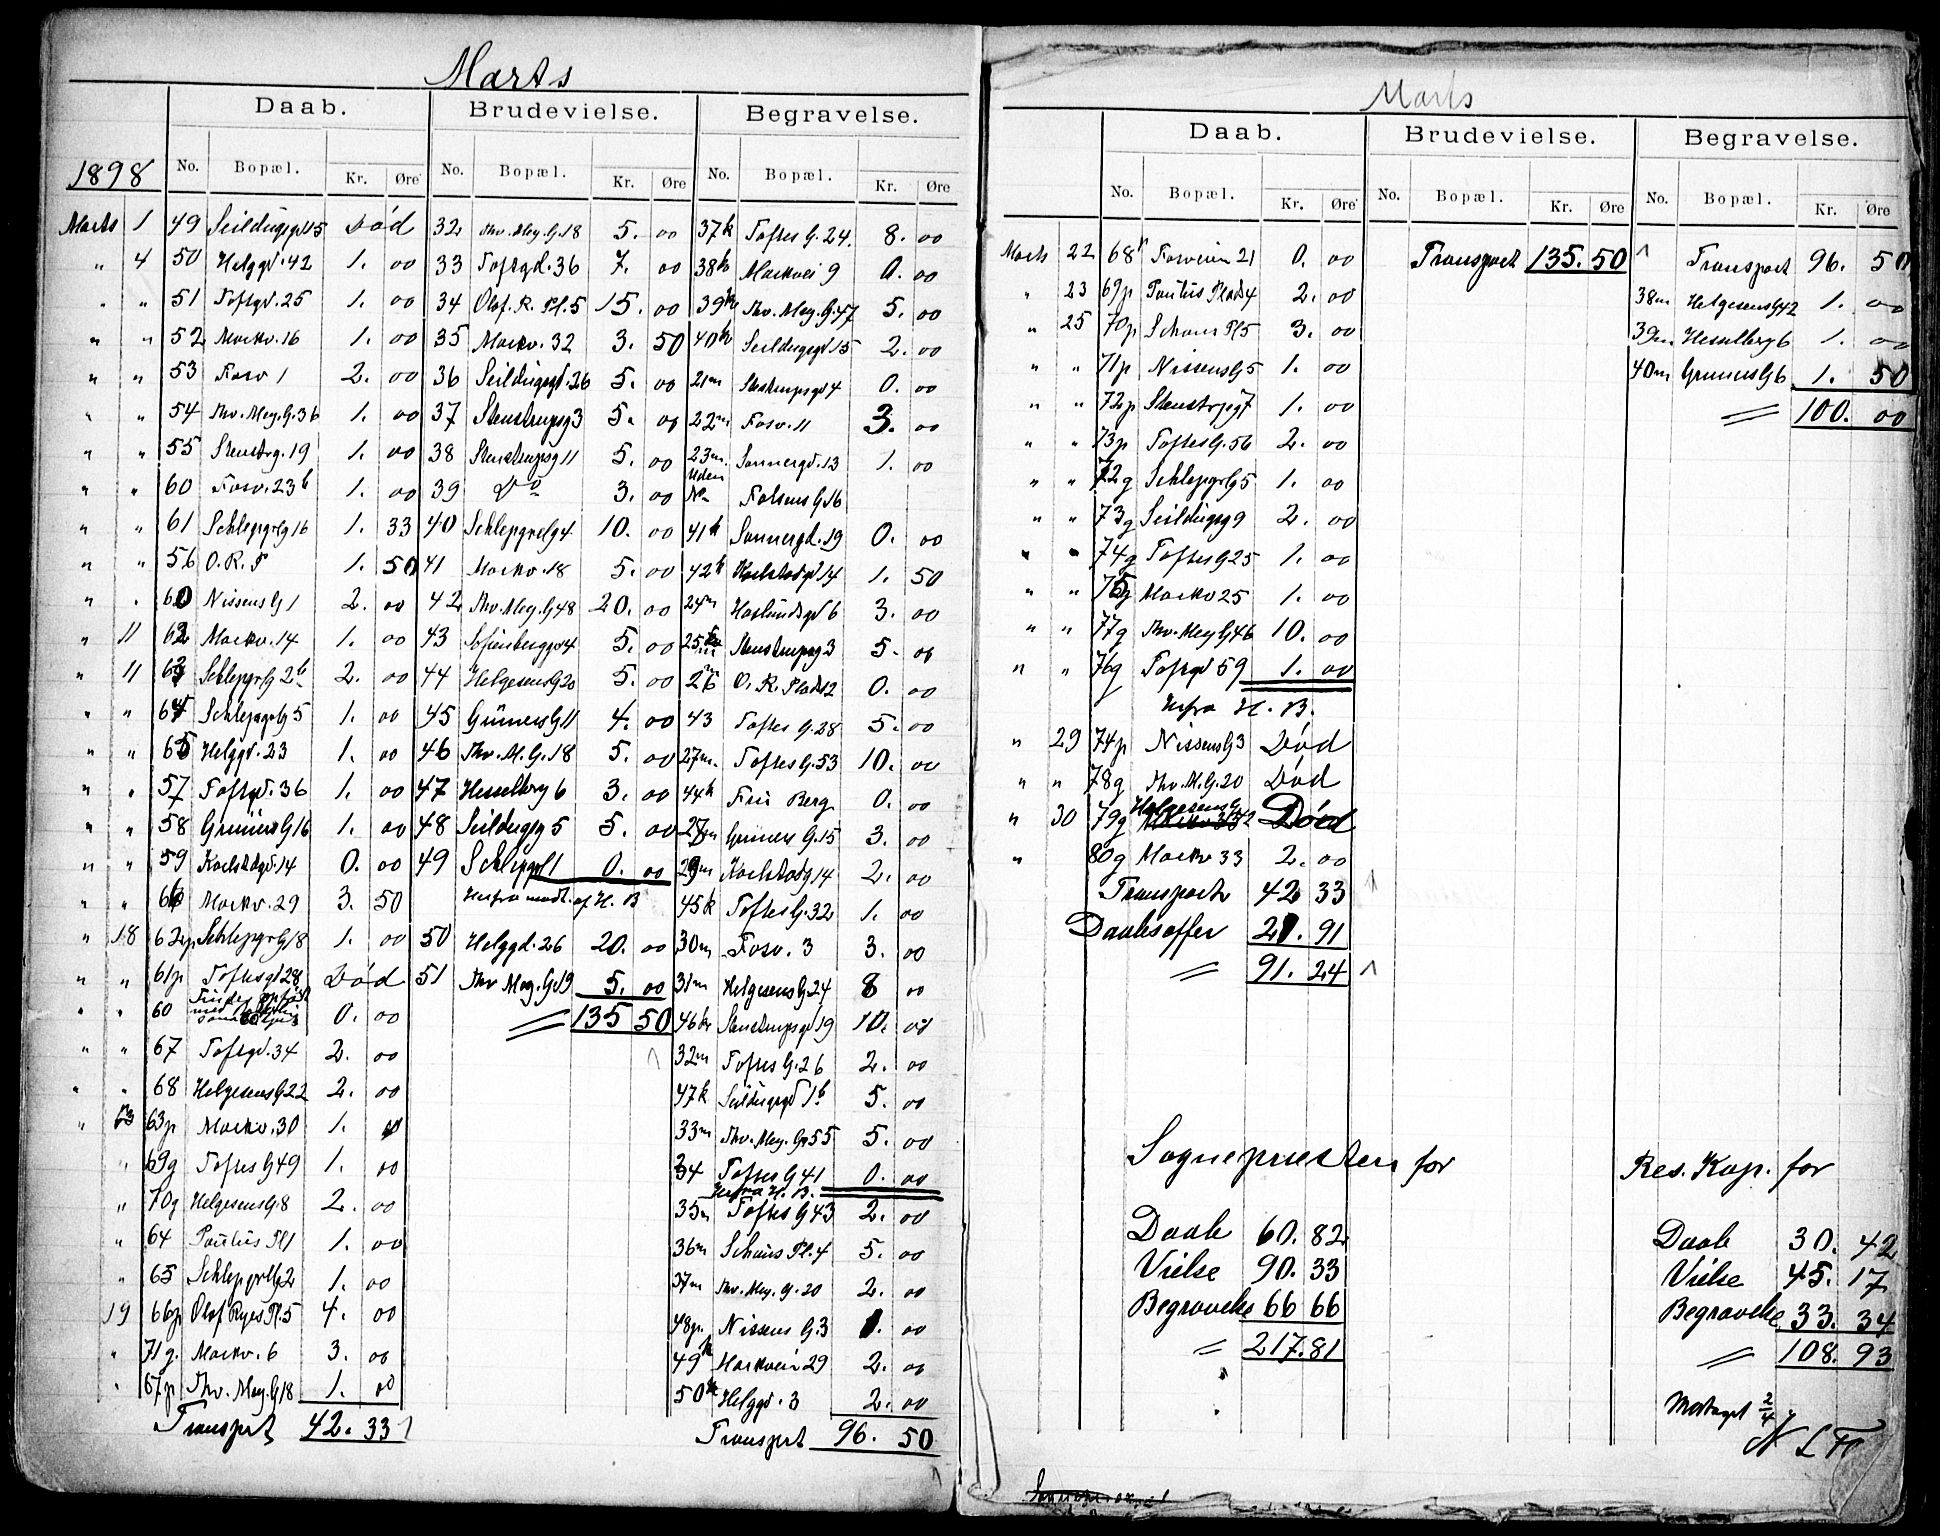 Marts
Daab. Brudevielse. Begravelse.
1898 No. Bopæl. Kr. Øre No. Bopæl. Kr. Øre No. Bopæl. Kr. Øre
Marts 1 49 Seildugsgd 15 Død 32 Thv. Mey. G. 18 5. 00 37k Toftes G. 24. 8. 00
" 4 50 Helggd. 42 1. 00 33 Toftgd. 36 7. 00 38k Markvei 9 0. 00
" " 51 Toftgd. 25 1. 00 34 Olaf. R. Pl. 5 15. 00 39k Thv. Mey. G. 47 5. 00
" " 52 Markv. 16 1. 00 35 Markv. 32 3. 50 40k Seildugsgd 15 2. 00
" " 53 Fosv 1 2. 00 36 Seildugsgd. 26 5. 00 21m Stenstrupsgd 4 0. 00
" " 54 Thv. Mey. G. 36 1. 00 37 Stenstrupsg 3 5. 00 22m Fosv. 11 3. 00
" " 55 Stenstrg. 19 1. 00 38 Stenstrupsg 11 5. 00 23m. Sannergd. 13 1. 00
" " 60 Fosv. 23b 1. 00 39 Do 3. 00 Uden No Toftesns G 16
" " 61 Schleppgrlg 16 1. 33 40 Schleppgrelg 4 10. 00 41k Sannergd. 19 0. 00
" " 56 O. R. P 1. 50 41 Markv. 18 5. 00 42k Karlstadgd 14 1. 50
" " 60 Nissens G 1 2. 00 42 Thv. Mey. G 48 20. 00 24m Haslundsgd 6 3. 00
" 11 62 Markv. 14 1. 00 43 Sofienberggd 4 5. 00 25m Stenstrupsg 3 5. 00
" 11 63 Schlepgr G 2b 2. 00 44 Helgesens G 20 5. 00 26m O. R. Plads 2 0. 00
" " 64 Schlepgr G 5 1. 00 45 Grüners G 11 4. 00 43 Toftes G. 28 5. 00
" " 65 Helggd. 23 1. 00 46 Thv. M. G. 18 5. 00 27m. Toftes G. 53 10. 00
" " 57 Toftgd. 36 1. 00 47 Hesselberg 6 3. 00 44k Frie Berg 0. 00
" " 58 Grüners G 16 1. 00 48 Seildugsg 5 5. 00 28m Grüners G. 15 3. 00
" " 59 Karlstadgd 14 0. 00 49 Schleppgl 1 0. 00 29m Karlstadg 14 2. 00
" " 66 Markv. 29 3. 50 Herfra modt. af H. B 45k Toftes G. 32 1. 00
" 18 62p Schlepgr G 18 1. 00 50 Helggd. 26 20. 00 30m Fosv. 3 3. 00
" " 61p Toftesgd 28 Død 51 Thv Mey. G 19 5. 00 31m Helgesens G. 24 8 00
" " 60 0. 00 135 50 46k Stenstrupsgd 19 10. 00
" " 67 Toftgd. 34 2. 00 32m Toftes G. 26 2. 00
" " 68 Helgesens G 22 2. 00 47k Seildugsgd 1b 5. 00
" 63p Markv. 30 1. 00 33m Thv. Mey. G. 55 5. 00
" 69g Toftes G 49 1. 00 34 Toftes G 41 0. 00
Herfra H. B.
" 70g Helgesens G. 8 2. 00 35m Toftes G 43 2. 00
" 64 Paulus Pl 1 1. 00 36m Schous Pl. 4 5. 00
" 65 Schlepgrlg 2 1. 00 37m Thv. Mey. G. 20 2. 00
19 66p Olaf Ryes Pl. 5 4. 00 48p. Nissens G. 3 1. 00
" 71g. Markv. 6 3. 00 49k Markvein 29 2. 00
" 67p Thv. Mey. G 18 1. 00 50k Helggd. 3 2. 00
Transport 42. 33 Transport 96. 50
Marts
Daab. Brudevielse. Begravelse.
No. Bopæl. Kr. Øre No. Bopæl. Kr. Øre No. Bopæl. Kr. Øre
Marts 22 68p Fosveien 21 0. 00 Transport 135. 50 Transport 96. 50
" 23 69p Paulus Plads 4 2. 00 38m Helgesens G 42 1. 00
" 25 70p Schous Pl 5 3. 00 39m Hesselberg 6 1. 00
" " 71p Nissens G 5 1. 00 40m Grüners G 6 1. 50
" " 72p Stenstrpg 7 1. 00 100. 00
" " 73p Toftes G. 56 2. 00
" " 72g Schlepgr G 5 1. 00
" " 73g Seildugsg 9 2. 00
" " 74g Toftes G 25 1. 00
" " 75g Markv 25 1. 00
" " 77g Thv. Mey G 46 10. 00
" " 76g Toftgd 59 1. 00
Herfra H. B.
" 29 74p Nissens G 3 Død
" " 78g Thv. M. G. 20 Død
" 30 79g Helgesens G 2 Død
" 80g Markv 33 2. 00
Transport 42 33
Daabsoffer 21. 91
91. 24
Sognepræsten for Res. Kap. for
Daab 60. 82 Daab 30. 42
Vielse 90. 33 Vielse 45. 17
Begravelse 66 66 Begravelse 33. 34
217. 81 108. 93
Modtaget 2/4